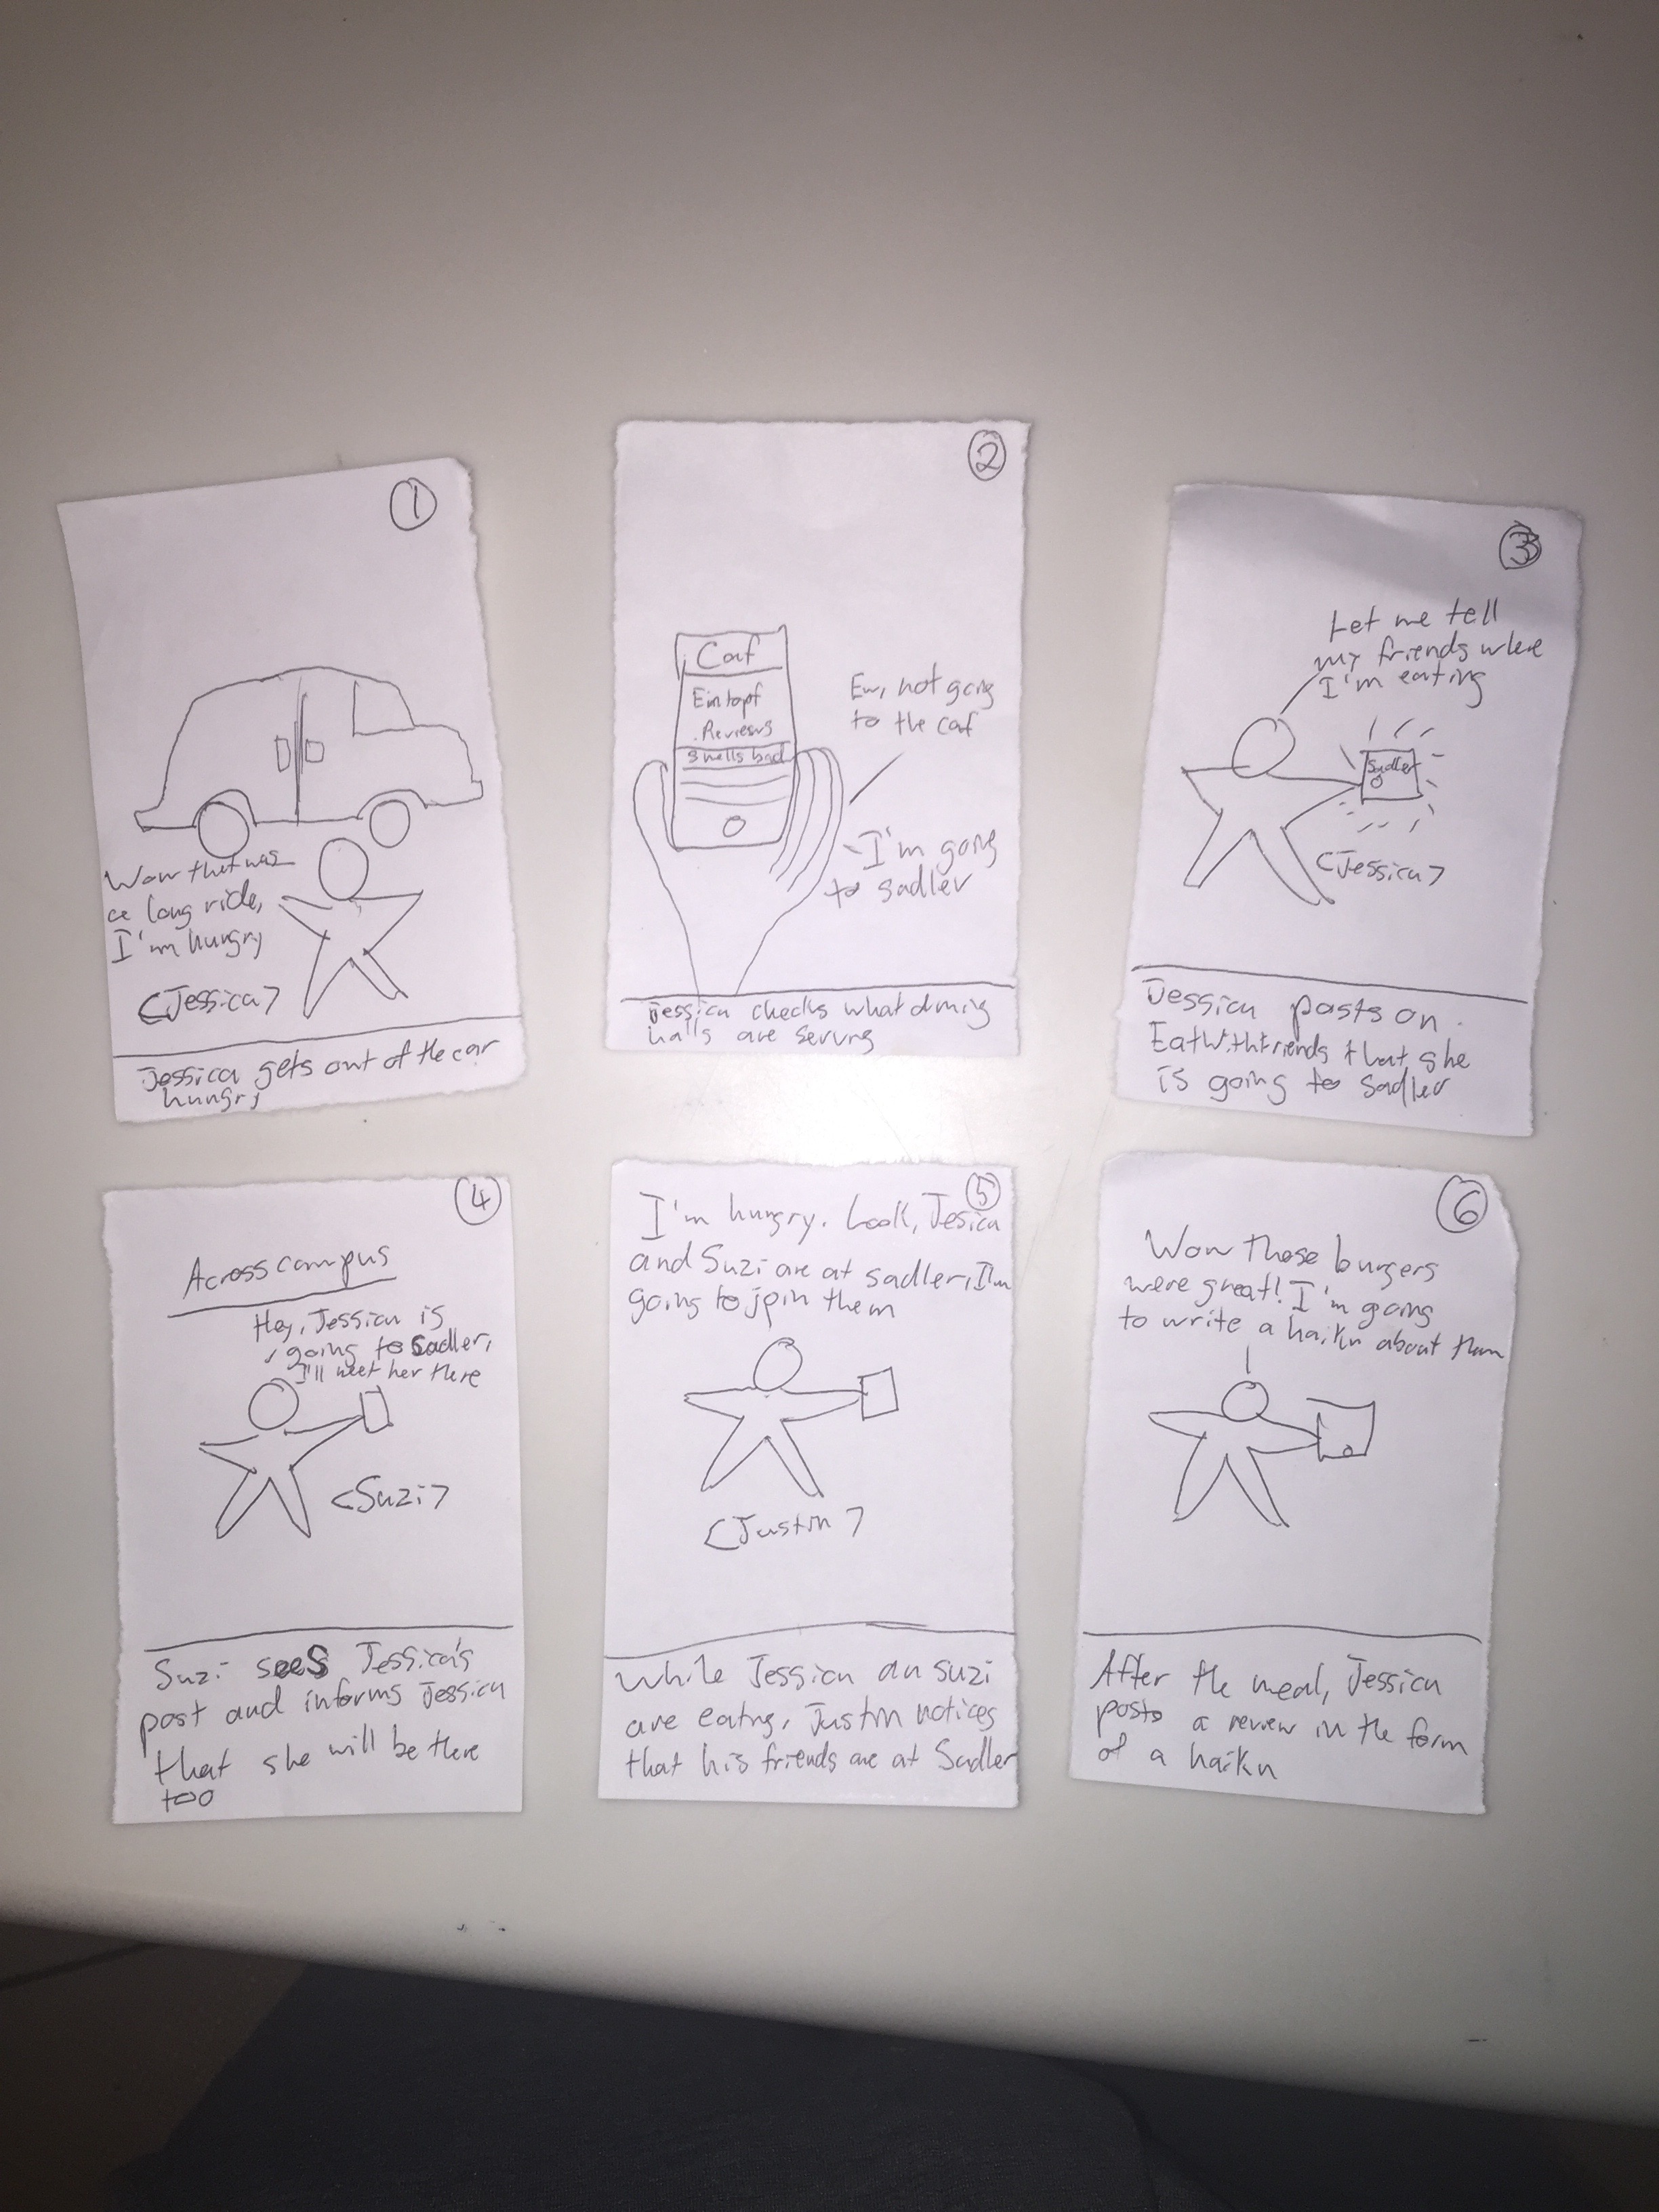 1
Wow that was
a long ride,
I'm hungry
<Jessica>
Jessica gets out of the car
hungry
2
Caf
Eintopf
Reviews
smells bad
Ew, not going
to the caf
I'm going
to sadler
Jessica checks what dining
halls are serving
3
Let me tell
my friends where
I'm eating
Sadler
<Jessica>
Jessica posts on
EatWithFriends that she
is going to sadler
4
Across campus
Hey, Jessica is
going to Sadler,
I'll meet her there
<Suzi>
Suzi sees Jessica's
post and informs Jessica
that she will be there
too
5
I'm hungry. Look, Jesica
and Suzi are at sadler, I'm
going to join them
<Justin>
While Jessica an suzi
are eating, Justin notices
that his friends are at Sadler
6
Wow those burgers
were great! I'm going
to write a haiku about them
After the meal, Jessica
posts a review in the form
of a haiku